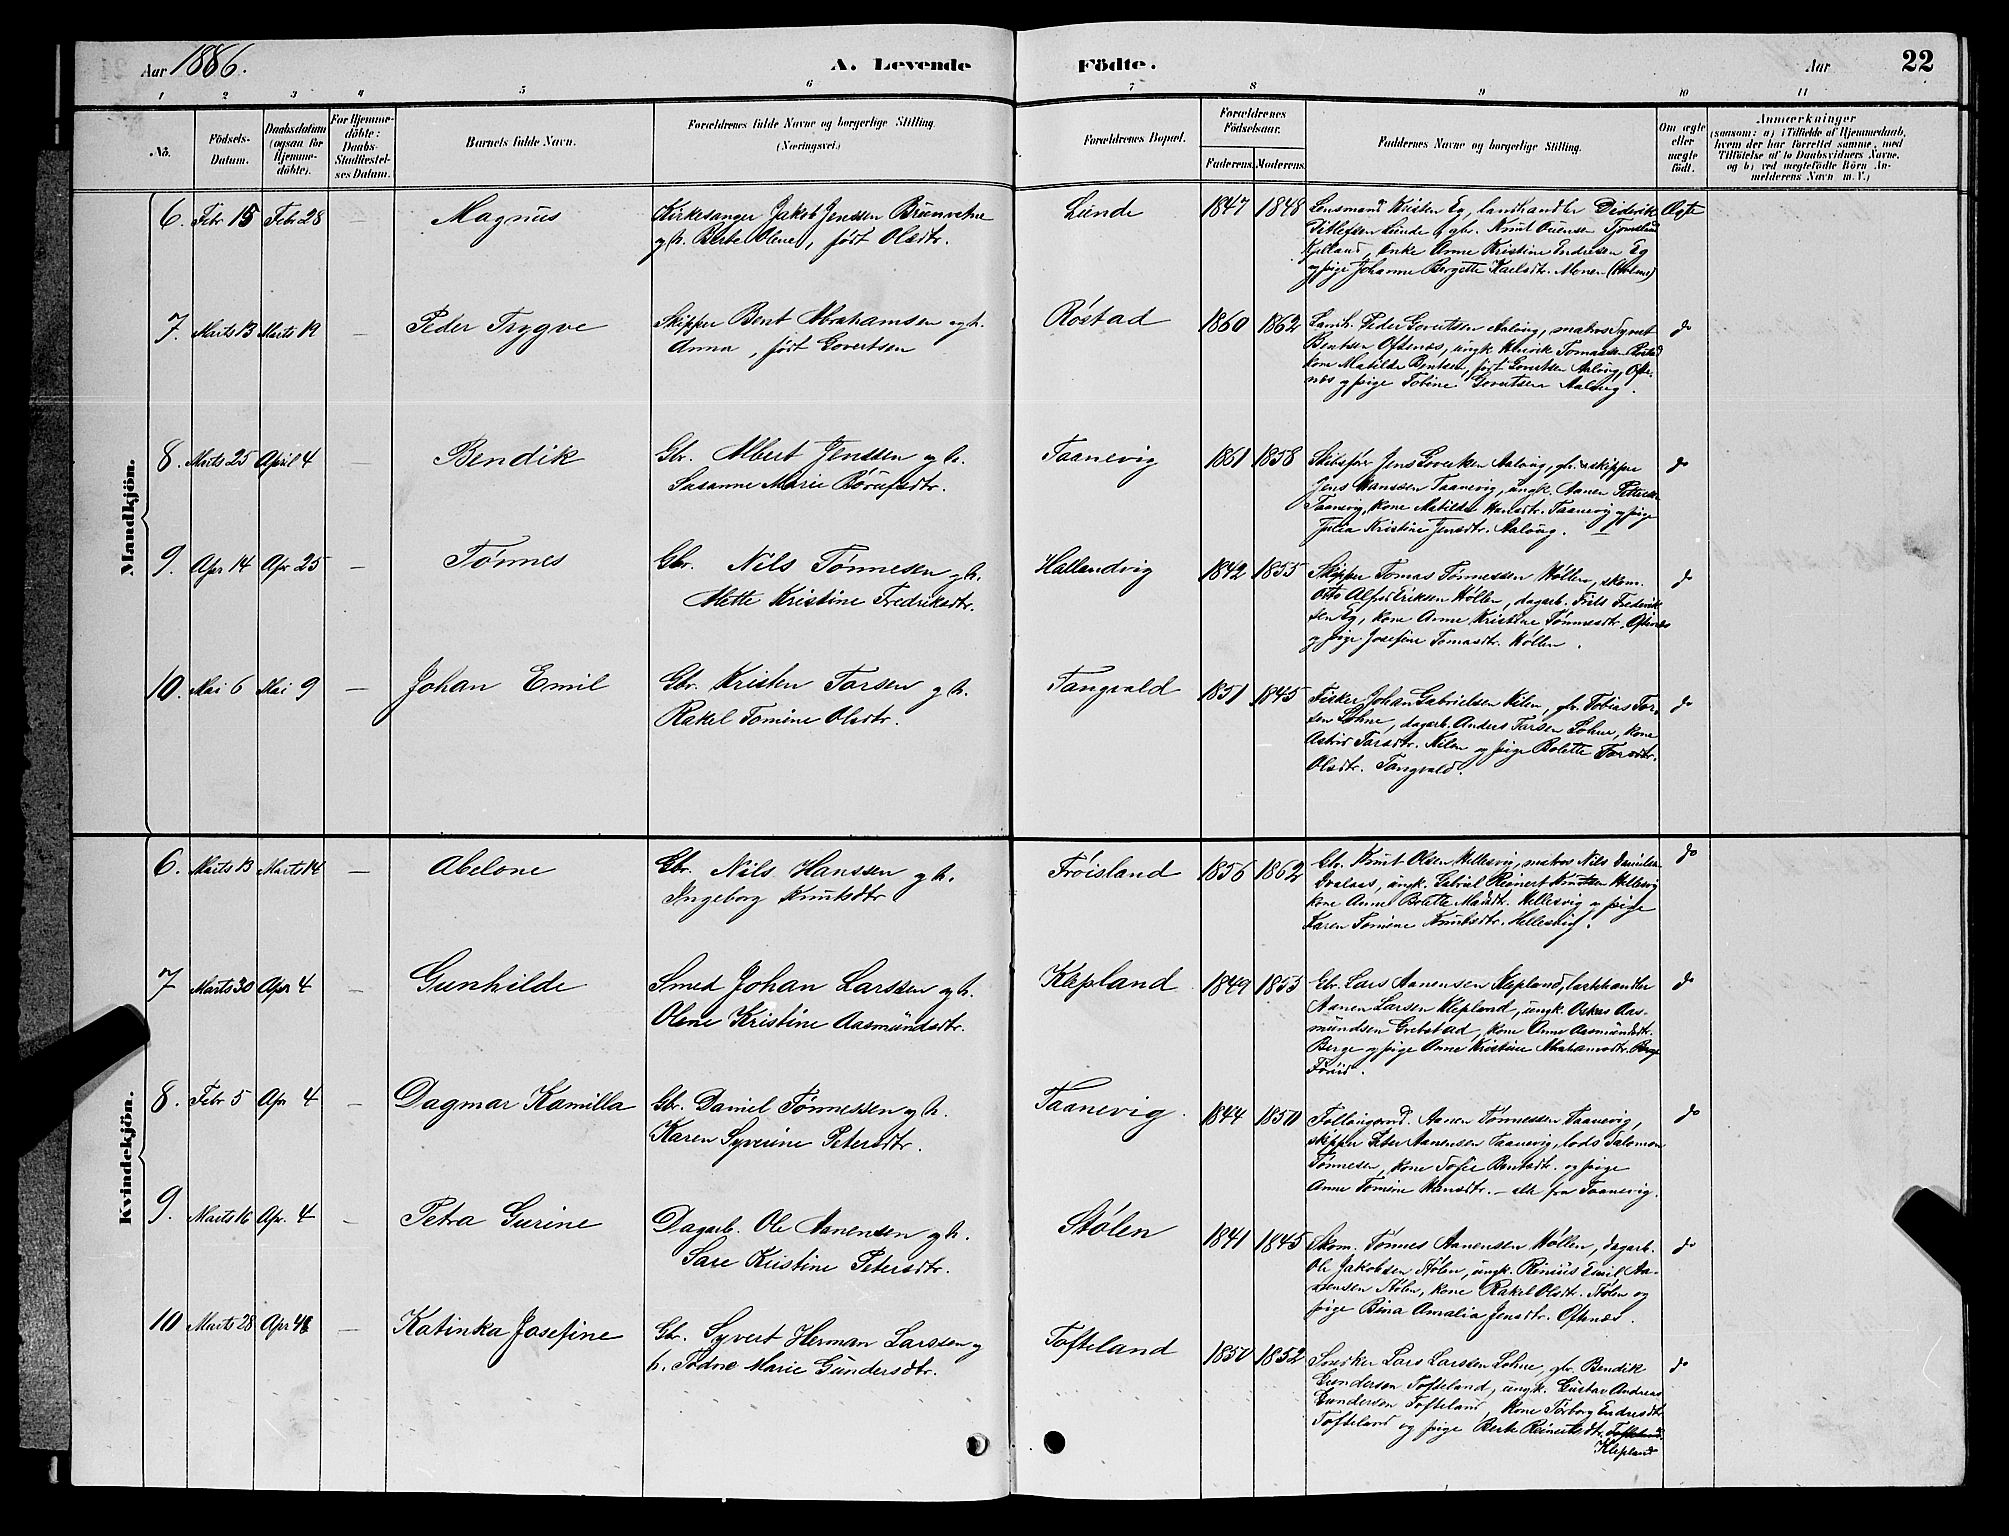 Aar 1886.
A. Levende Födte.
Aar
22
1 2 3 4 5 6 7 8 9 10 11
No.
Födsels-
Datum.
Daabsdatum
(ogsaa for
Hjemme-
döbte).
For Hjemme-
döbte:
Daabs-
Stadfæstel-
ses Datum.
Barnets fulde Navn.
Forældrenes fulde Navne og borgerlige Stilling
(Næringsvei.)
Forældrenes Bopæl.
Forældrenes
Födselsaar.
Faderens. Moderens.
Faddernes Navne og borgerlige Stilling.
Om ægte
eller
uægte
födt.
Anmærkninger
(saasom: a) i Tilfælde af Hjemmedaab,
hvem der har forrettet samme, med
Tilföielse af to Daabsvidners Navne,
og b) ved uægtefödte Börn An-
melderens Navn m. V.)
Mandkjön.
6. Febr 15 Febr 28 — Magnus
Kirkesanger Jakob Jenssen Brunvatne
og h. Berte Olene, født Olsdtr.
Lunde 1847 1848
Lensmand Kristen Eg, landhandler Diderik
Ditlefsen Lunde, gbr. Knut Ouensen Tjomsland
Kjelland, enke Anne Kristine Endresen Eg
og pige Johanne Bergette Karlsdtr. Monen (Holme)
Ægte
7. Marts 13 Marts 19 — Peder Trygve
Skipper Bent Abrahamsen og h.
Anna, født Govertsen
Røstad 1860 1862
Landh. Peder Govertsen Aalvig, matros Syvert
Bentsen Oftenæs, ungk. Henrik Tomassen Røstad
kone Matilde Bentsen, født Govertsen Aalvig, Ofte-
næs og pige Tobine Govertsen Aalvig.
do
8. Marts 25 April 4 — Bendik
Gbr. Albert Jenssen og h.
Susanne Marie Børufsdtr.
Taanevig 1861 1858
Skibsfører Jens Govertsen Aalvig, gbr. skipper
Jens Hanssen Taanevig, ungk. Aanen Pettersen
Taanevig, kone Matilde Hansdtr. Taanevig og pige
Julia Kristine Jensdtr. Aalvig.
do
9. Apr 14 Apr 25 — Tønnes
Gbr. Nils Tønnesen og h.
Mette Kristine Fredriksdtr.
Hallandvig 1842 1855
Skipper Tomas Tønnessen Høllen, skom.
Otto Alfred Eriksen Høllen, dagarb. Frits Frederik-
sen Eg, kone Anne Kristine Tønnesdtr. Oftenæs
og pige Josefine Tomasdtr. Høllen.
do
10. Mai 6 Mai 9 — Johan Emil
Gbr. Kristen Tarsen og h.
Rakel Tomine Olsdtr.
Tangvald 1851 1845
Fisker Johan Gabrielsen Kilen, gbr. Tobias Tar-
sen Lohne, dagarb. Anders Tarsen Lohne, kone
Astrid Tarsdtr. Kilen og pige Bolette Tarsdtr.
Olsdtr. Tangvald.
do
Kvindekjön.
6. Marts 13 Marts 14 — Abelone
Gbr. Nils Hanssen og h.
Ingeborg Knutsdtr
Frøisland 1856 1862
Gbr. Knut Olsen Hellesvig, matros Nils Danielsen
Dvalaas, ungk. Gabriel Reinert Knutsen Hellesvig
kone Anne Bolette Madsdtr. Hellesvig og pige
Karen Tomine Knutsdtr. Hellesvig.
do
7 Marts 30 Apr 4 — Gunhilde
Smed Johan Larssen og h.
Olene Kristine Aasmundsdtr.
Klepland 1849 1853
Gbr. Lars Aanensen Klepland, lasthandler
Aanen Larsen Klepland, ungk. Oskar Aas-
mundsen Grebstad, kone Anne Aasmundsdtr.
Berge og pige Anne Kristine Abrahamsdtr. Berge
do
8. Febr 5 Apr 4 — Dagmar Kamilla
Gbr. Daniel Tønnessen og h.
Karen Syverine Petersdtr.
Taanevig. 1844 1850
Aanen Tønnessen Taanevig,
skipper Peter Aanensen Taanevig, lods Salomon
Tønnesen, kone Sofie Bentsdtr. og pige
Anne Tomine Hansdtr. — alle fra Taanevig.
do
9. Marts 16 Apr. 4 — Petra Gurine
Dagarb. Ole Aanensen og h.
Sare Kristine Petersdtr.
Stølen 1841 1845
Skom. Tønnes Aanensen Høllen, dagarb.
Ole Jakobsen Stølen, ungk. Rinius Emil Aa-
nensen Stølen, kone Rakel Olsdt. Stølen og
pige Bina Amalia Jensdtr. Oftenæs.
do
10 Marts 28 Apr 4 — Katinka Josefine
Gbr. Syvert Herman Larssen og
h. Todne Marie Gundersdtr.
Tofteland 1850 1852
Snedker Lars Larssen Lohne, gbr. Bendik
Gundersen Tofteland, ungk. Gustav Andreas
Gundersen Tofteland, kone Torborg Endresdtr
Tofteland og pige Berte Reinertsdtr. Tofteland
Klepland
do